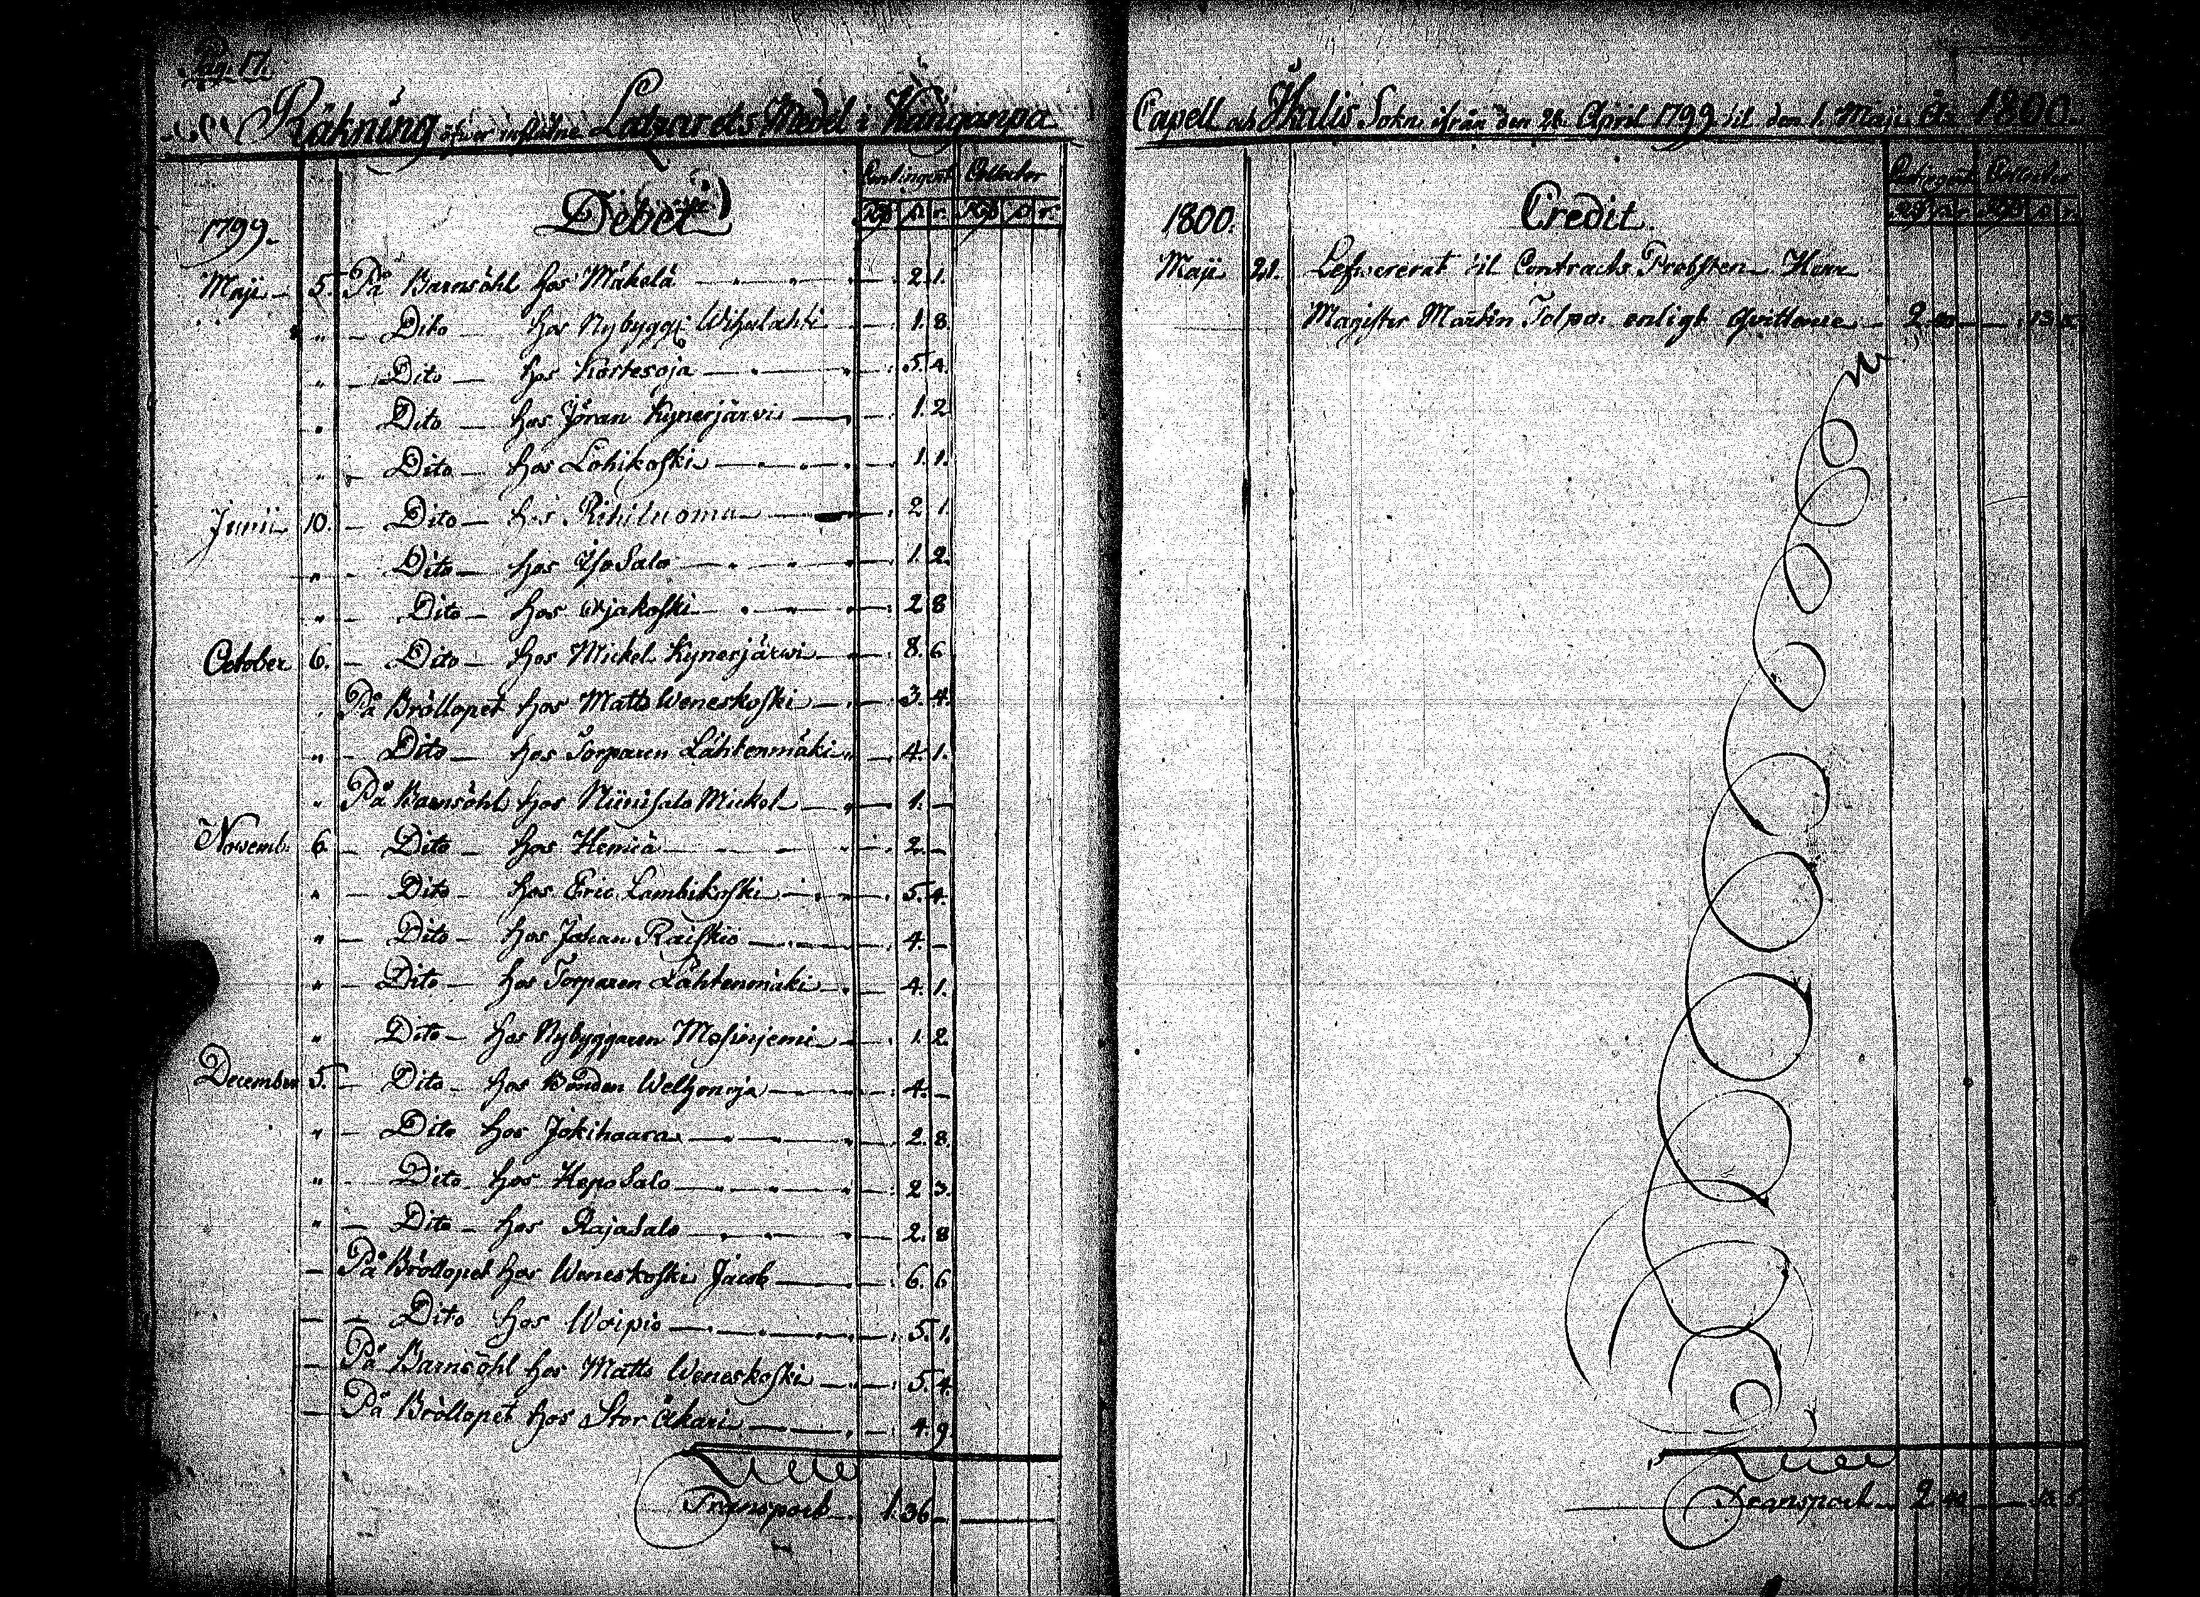 Pag. 17.
Räkning öfwer influtne Lazarets Medel i Kanganpä
Debet
Contingent Collecter
Rd s. r. Rd s. r.
1799.
Maji 5. På Barnsöhl hos Mäkelä 2. 1.
" Dito hos Nybygg: Wihalahti 1. 8.
" Dito hos Kortesoja 5. 4.
" Dito hos Jöran Kynerjärvi 1. 2
" Dito hos Lohikoski 1. 1.
Junii 10. Dito hos Rihiluoma 2. 1
" Dito hos IsoSalo 1. 2.
" Dito hos Ujakoski 2. 8
October 6. Dito hos Mickel Kynerjärwi 8. 6
" På Bröllopet hos Matts Weneskoski 3. 4.
" Dito hos Torparen Lähtenmäki 4. 1.
" På Barnsöhl hos Niinisalo Mickel 1. —
Novemb. 6 Dito hos Hemiä 2. —
" Dito hos Eric Lambikoski 5. 4.
" Dito hos Johan Raiskio 4. —
" Dito hos Torparen Lähtenmäki 4. 1.
" Dito hos Nybyggaren Mosinjemi 1. 2.
December 5. Dito hos Bonden Welhonoja 4. —
" Dito hos Jokihaara 2. 8.
" Dito hos HepoSalo 2 3.
" Dito hos RajaSalo 2. 8
— På Bröllopet hos Weneskoski Jacob 6. 6
— Dito hos Woipio 5. 1.
— På Barnsöhl hos Matts Weneskoski 5. 4.
— På Bröllopet hos Stor Äkäri 4. 9.
Transport 1. 36 —
Capell och Ikalis Sokn ifrån den 26 April 1799 til den 1. Maji År 1800.
Credit.
Contingent Collecter
1800.
Maji 21. Lefwererat til Contracts Probsten Herr
Magister Martin Tolpo enligt Qvittence 2 40 — — 13. 5.
Transport 2 40 — — 13. 5.